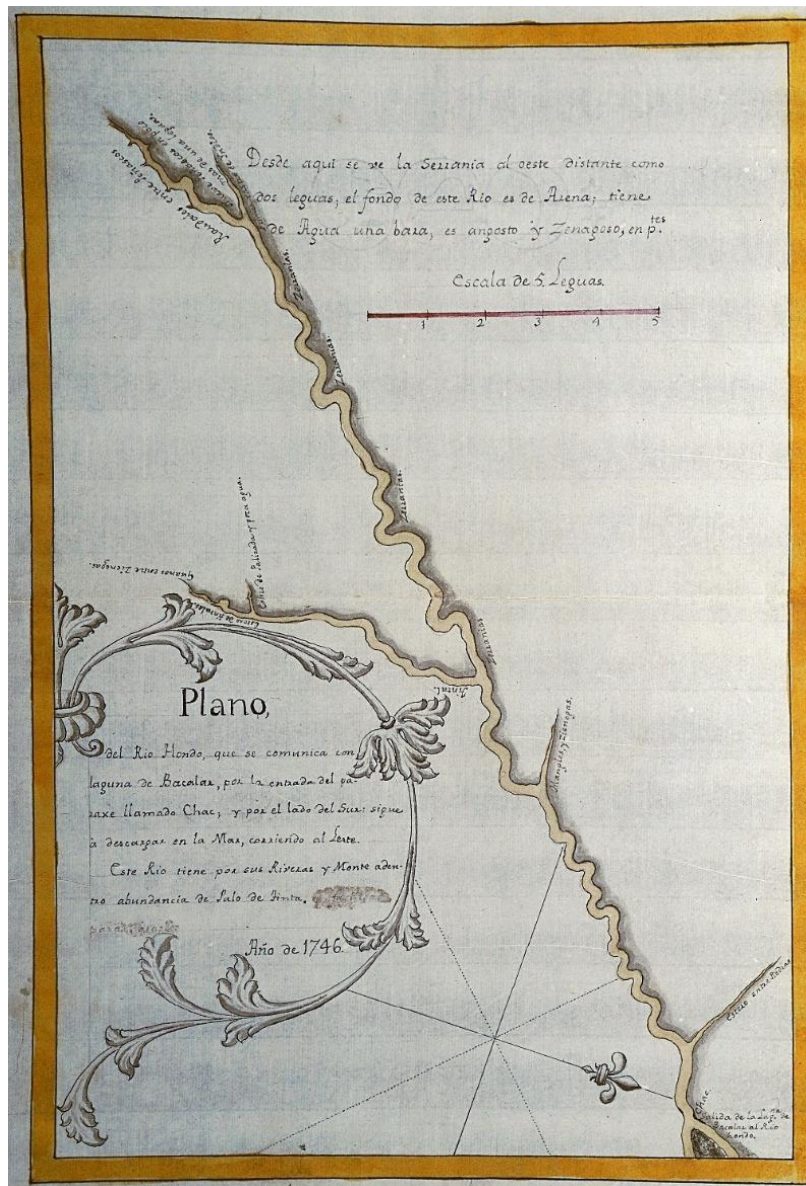 Desde aqui se ve la Serrania al oeste distante como
dos leguas; el fondo de este Rio es de Arena; tiene
de Agua una bara, es angosto y Zenagoso, en p.tes
Escala de 5. Leguas
1 2 3 4 5
Raudales entre Peñascos
Zerranias.
Zerranias.
Zerranias.
Zerranias
Estero de Palizada y poca agua.
Guanos entre Zienegas.
Tintal.
Manglesy, y Zienegas.
Plano,
del Rio Hondo, que se comunica con
laguna de Bacalar, por la entrada del pa-
raxe llamado Chac; y por el lado del Sur: sigue
à descargar en la Mar, corriendo al Leste.
Este Rio tiene por sus Riveras y Monte aden-
tro abundancia de Palo de Tinta.
Año de 1746
Estero entre Piedras
Chac.
Salida de la Lag.na de
Bacalar al Rio
Hondo.